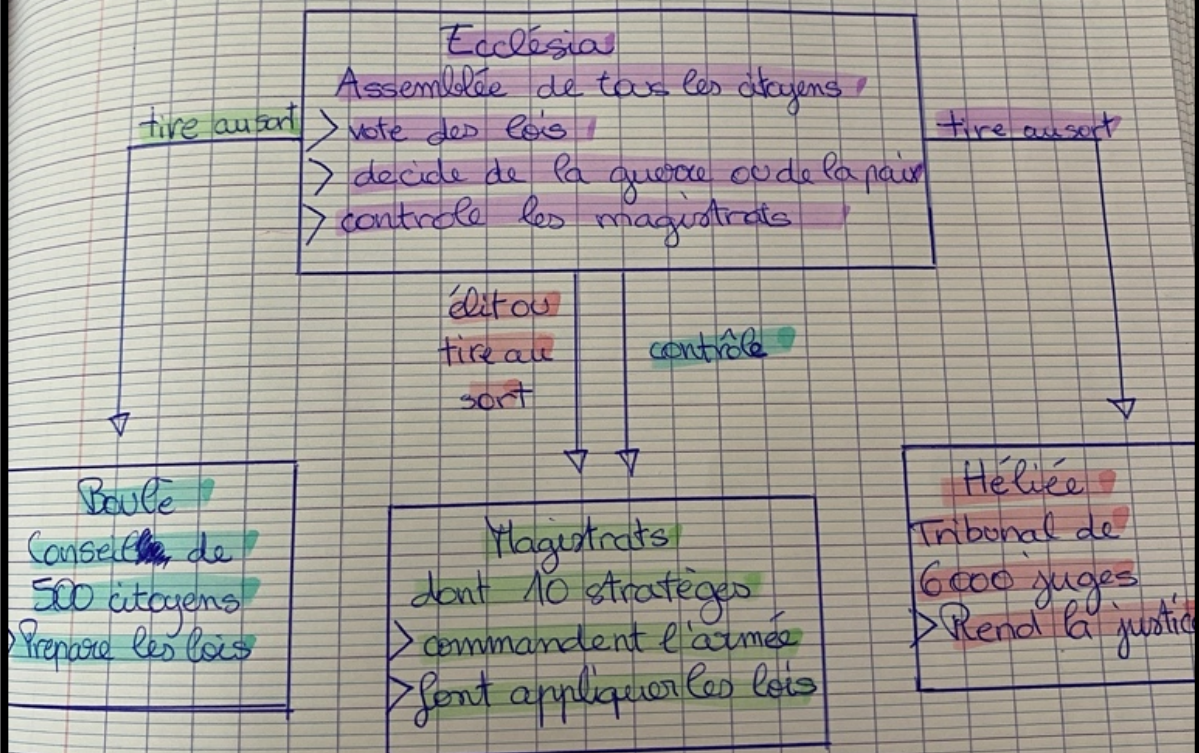 Ecclésia
Assemblée de tous les citoyens
tire au sort
> vote des lois
tire au sort
> decide de la guerre ou de la paix
> controle les magistrats
élit ou
tire au
sort
contrôle
Boulè
Conseil de
500 citoyens
> Prepare les lois
Magistrats
dont 10 stratèges
> commandent l'armée
> font appliquer les lois
Héliée
Tribunal de
6000 juges
> Rend la justice